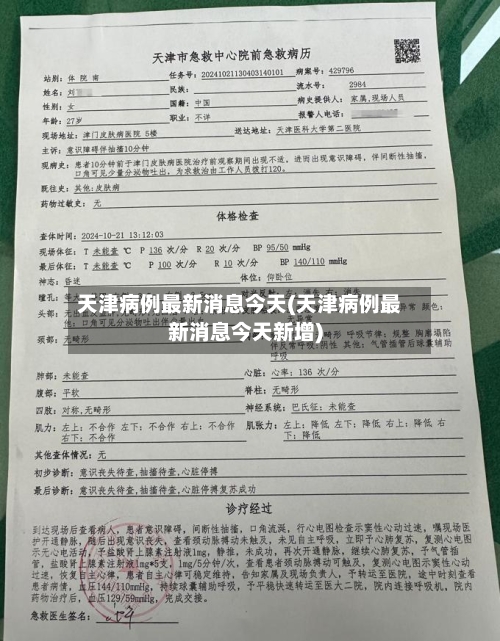 天津市急救中心院前急救病历
站别：体 院 南 任务号：20241021130403140101 病案号：429796
姓名：刘 民族： 流水号： 2984
性别：女 国籍：中国 病史提供人：家属,现场人员
年龄：27岁 职业：不详 报警人电话：
现场地址：津门皮肤病医院 5楼 送达地址：天津医科大学第二医院
主诉：意识障碍伴抽搐10分钟
现病史：患者10分钟前于津门皮肤病医院治疗前观察期间出现不适，进而出现意识障碍，伴间断性抽搐，
口角可见少量分泌物吐出，为求救治由工作人员拨打120。
既往史：其他:皮肤病
药物过敏史：无
体格检查
查体时间：2024-10-21 13:12:03
现场体征： T 未能查 ℃ P 136 次/分 R 20 次/分 BP 95/50 mmHg
最后体征： T 未能查 ℃ P 100 次/分 R 10 次/分 BP 140/110 mmHg
神志：昏迷 体位：仰卧位
天津病例最新消息今天(天津病例最
新消息今天新增)
颈部：无畸形
呼吸
肺部：未能查 心脏：心率：136 次/分
腹部：平软 脊柱：无畸形
四肢：对称,无畸形 神经系统：巴氏征：未能查
肌力：左上：不合作 左下：不合作 右上：不合作 肌张力：左上：降低 左下：降低 右上：降低 右
右下：不合作 下：降低
其他查体情况：无
初步诊断：意识丧失待查,抽搐待查,心脏停搏
最后诊断：意识丧失待查,抽搐待查,心脏停搏复苏成功
诊疗经过
到达现场后查看病人，患者意识障碍，间断性抽搐，口角流涎，行心电图检查示窦性心动过速，嘱现场医
护开通静脉，随后出现意识丧失，查看颈动脉搏动未触及，未见自主呼吸，立即予心肺复苏，复测心电图
示无心电活动，予盐酸肾上腺素注射液1mg，静推，未成功，再次开通静脉，继续心肺复苏，予气管插
管，盐酸肾上腺素注射液1mg*5支，1mg/5分钟/次，查看患者颈动脉搏动可触及，复测心电图示窦性心动
过速，恢复自主心律，患者自主心律可稳定维持，告知家属及现场负责人，予转运至医院，途中时刻查看
患者病情，血压144/110mmHg，持续球囊辅助呼吸，予平稳快速转运至医大二院，院内连接呼吸机，院内
药物治疗后，血压129/59mmHg，完成交接。
急救医生签名：